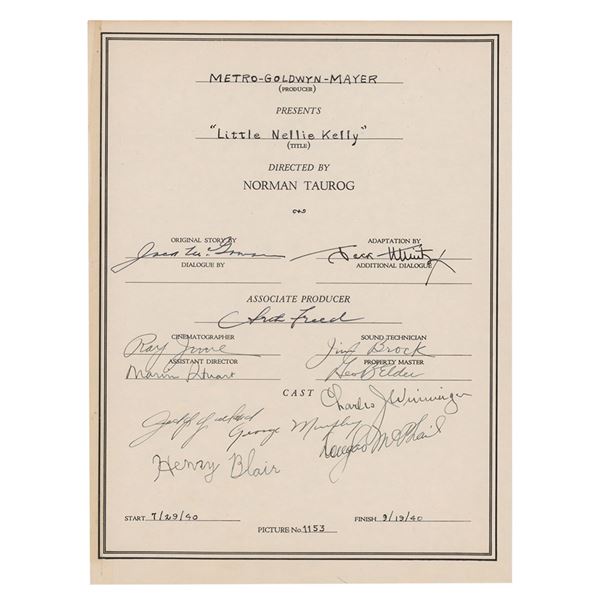 METRO-GOLDWYN-MAYER
(PRODUCER)
PRESENTS
"Little Nellie Kelly"
(TITLE)
DIRECTED BY
NORMAN TAUROG
ORIGINAL STORY BY
ADAPTATION BY
Jack
Jack
DIALOGUE BY
ADDITIONAL DIALOGUE
ASSOCIATE PRODUCER
Arth Freed
CINEMATOGRAPHER
SOUND TECHNICIAN
Ray June
Jim Brock
ASSISTANT DIRECTOR
PROPERTY MASTER
Marvin Stuart
Geo Elder
CAST
Charles J Winninger
Judy Garland
George Murphy
Douglas McPhail
Henry Blair
START 7/29/40
FINISH 9/19/40
PICTURE No. 1153